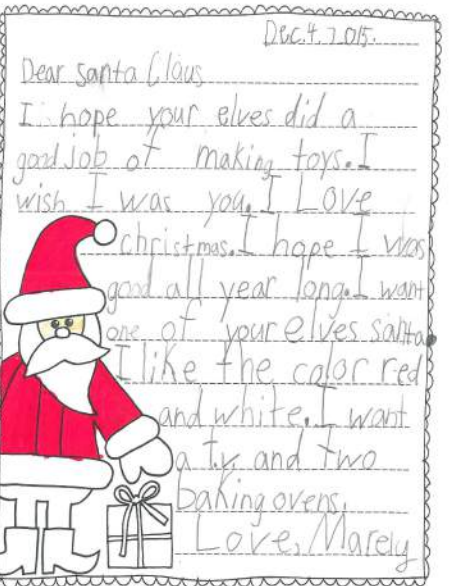 Dec. 4. 2015.
Dear Santa Claus
I hope your elves did a
good job of making toys. I
wish I was you. I Love
christmas. I hope I was
good all year long. I want
one of your elves santa.
I like the color red
and white. I want
a t.v. and two
baking ovens.
Love, Marely